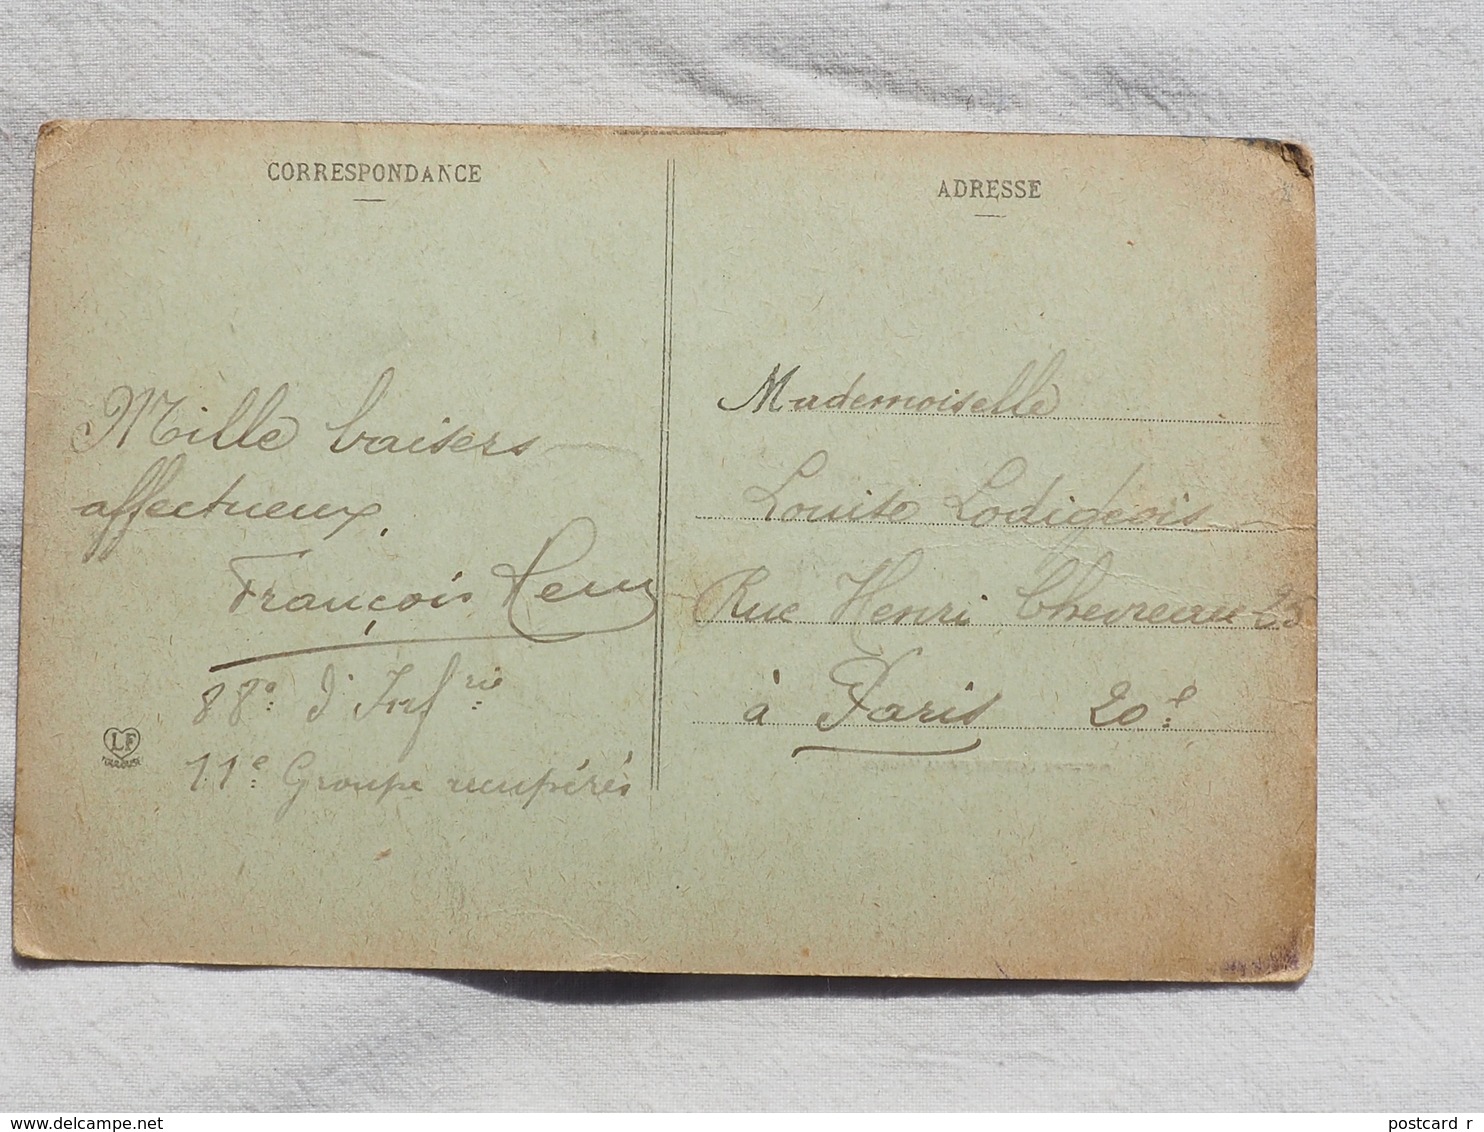 CORRESPONDANCE
Mille baisers
affectueux
François
88e d'Infrie
11e Groupe recupérés
LF
TOULOUSE
ADRESSE
Mademoiselle
Louise Lodigeois
Rue Henri Chevreau 23
à Paris 20e
delcampe.net
postcard r